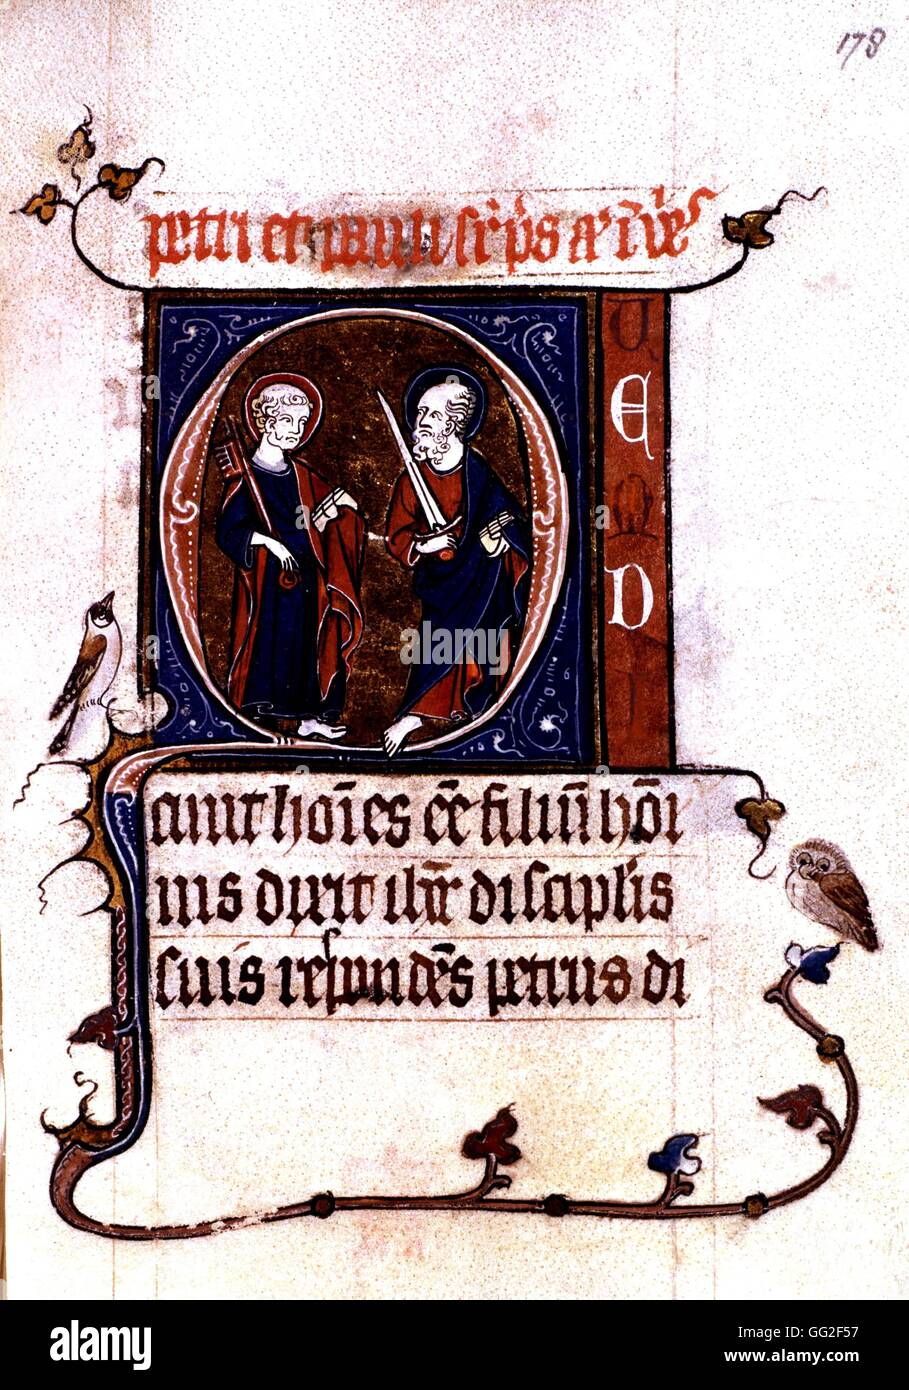 178
petri et pauli
Q U
E
M
D
I
cunt hoīes eē filiū hoī
nis dixit ihr̄ discipl̄is
suis respondēs petrus di
alamy
Image ID: GG2F57
www.alamy.com